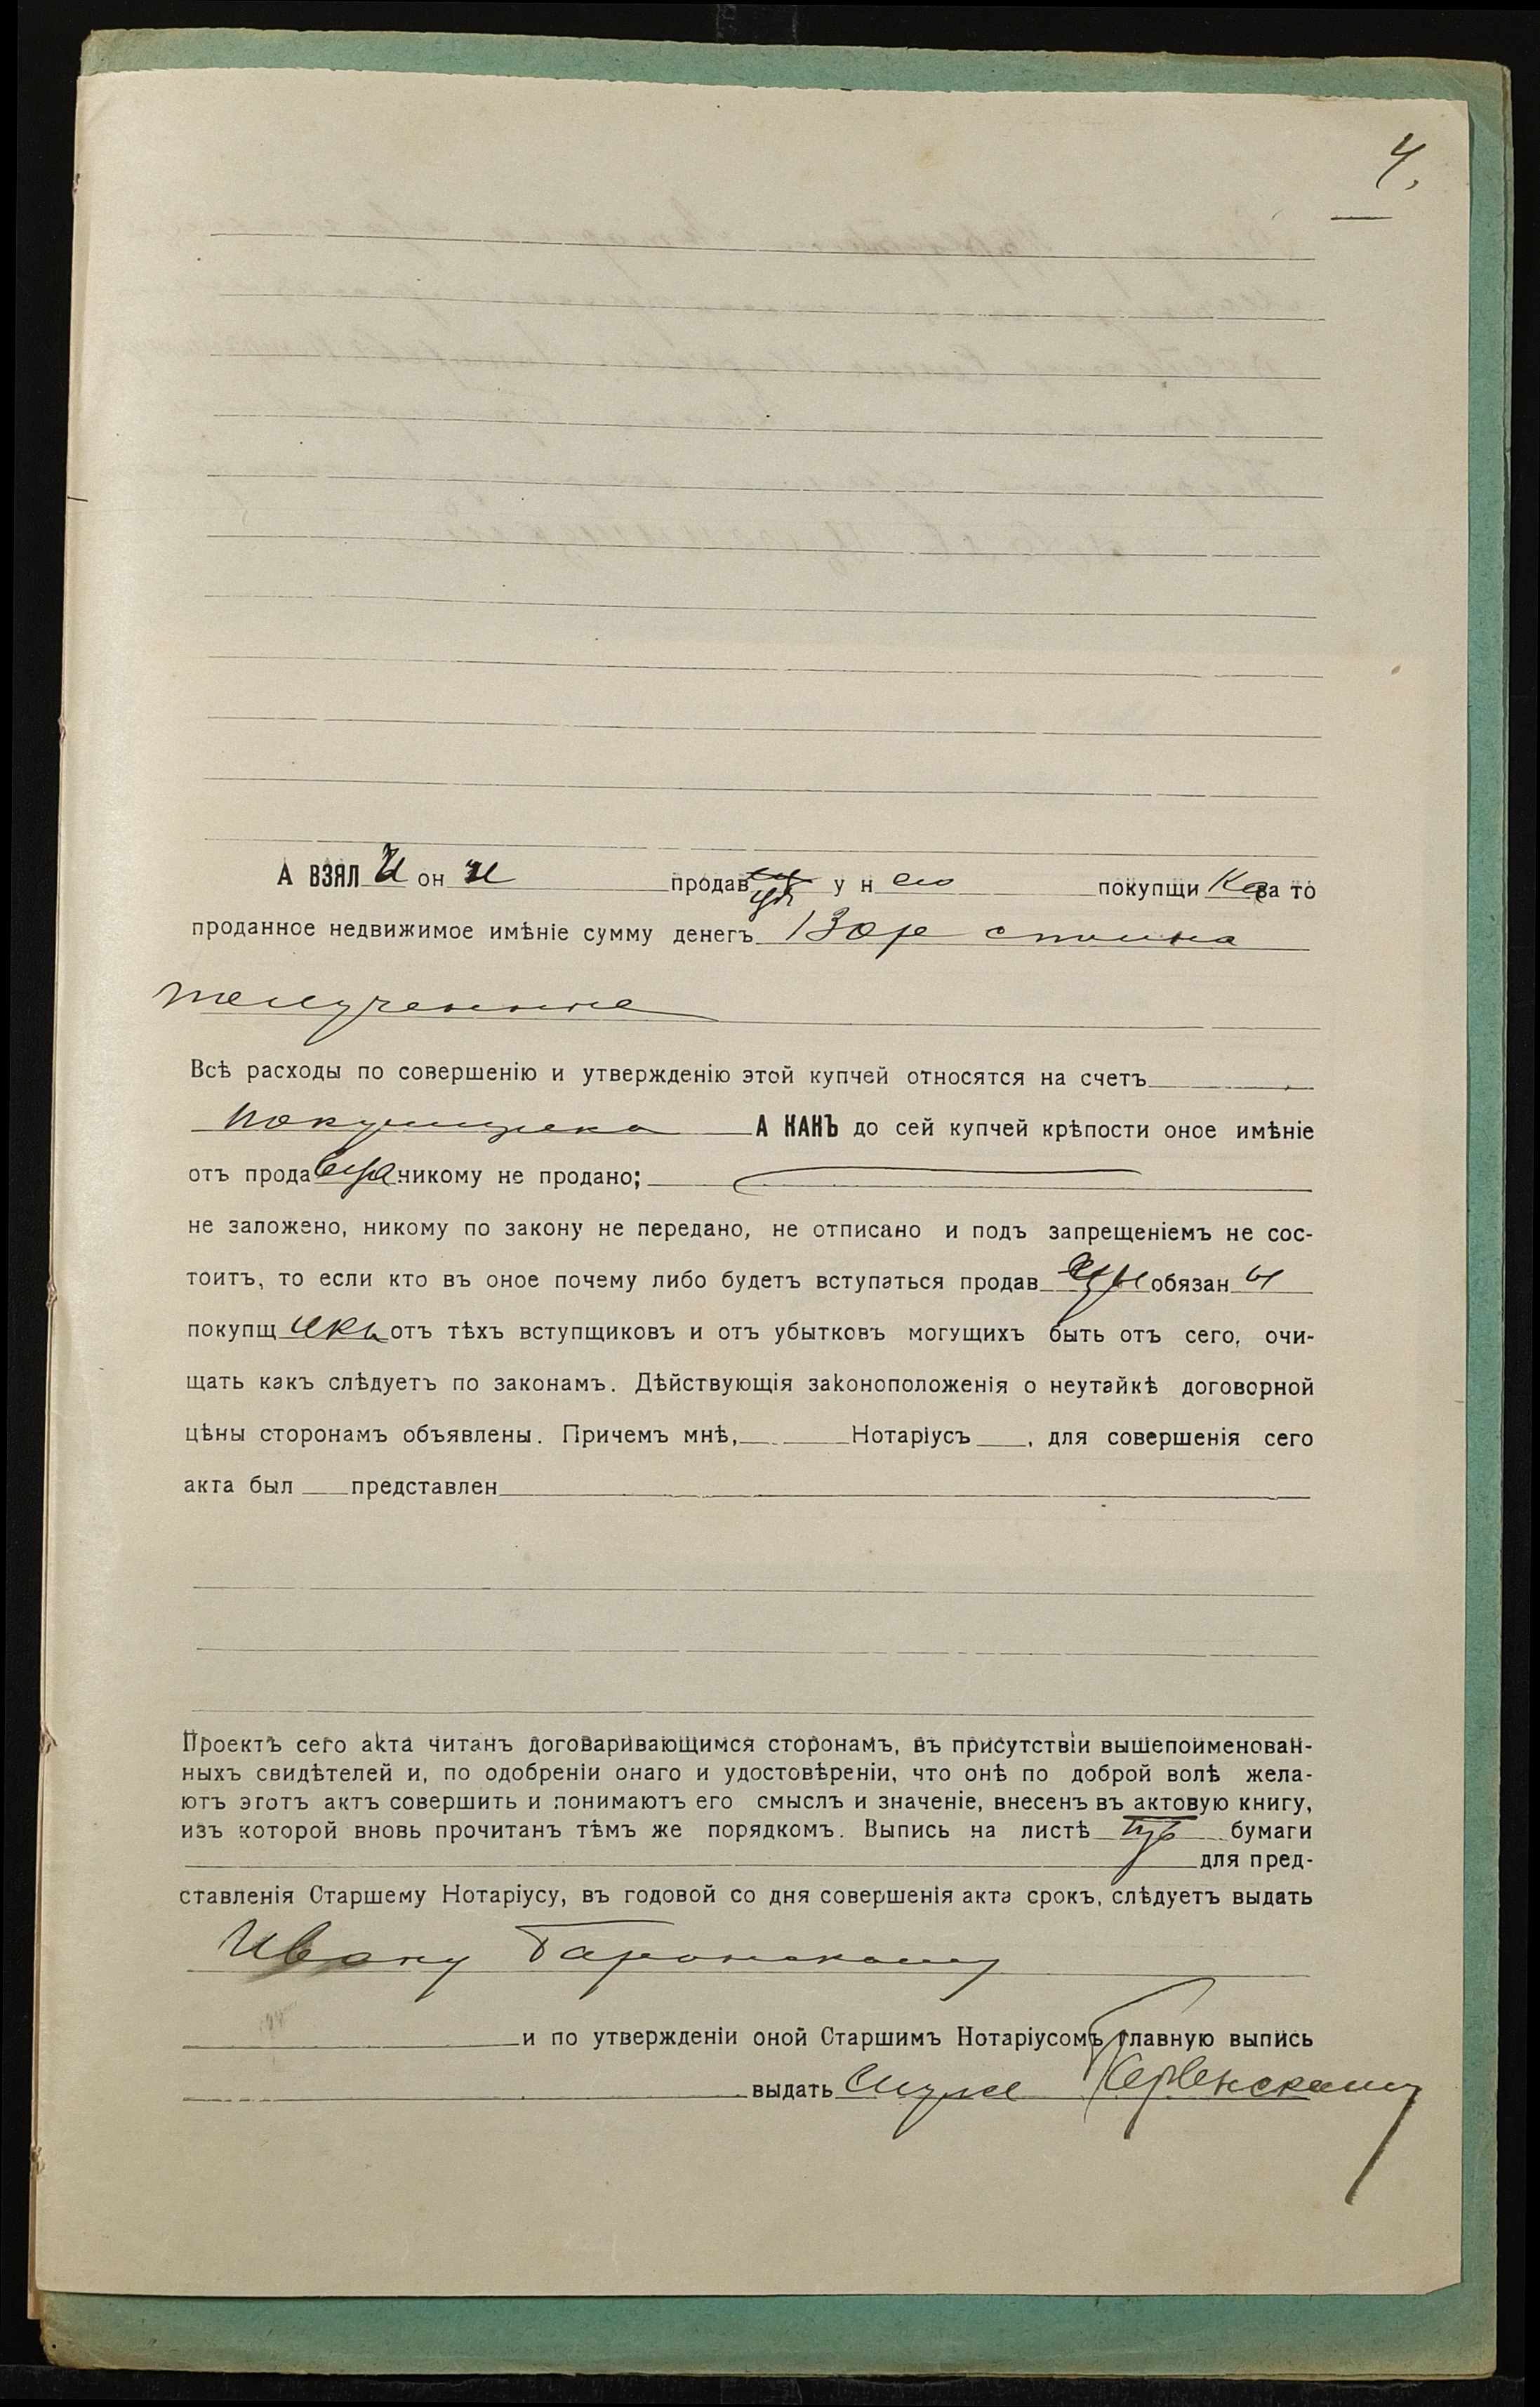 4.
А ВЗЯЛ и он и продавцы у н его покупщи ка за то
проданное недвижимое имѣніе сумму денегъ 130 р
полученные
Всѣ расходы по совершенію и утвержденію этой купчей относятся на счетъ
покупщика А КАКЪ до сей купчей крѣпости оное имѣніе
отъ продавца никому не продано;
не заложено, никому по закону не передано, не отписано и подъ запрещеніемъ не сос-
тоитъ, то если кто въ оное почему либо будетъ вступаться продав цы обязан ы
покупщ ика отъ тѣхъ вступщиковъ и отъ убытковъ могущихъ быть отъ сего, очи-
щать какъ слѣдуетъ по законамъ. Дѣйствующія законоположенія о неутайкѣ договорной
цѣны сторонамъ объявлены. Причемъ мнѣ, Нотаріусъ , для совершенія сего
акта был представлен
Проектъ сего акта читанъ договаривающимся сторонамъ, въ присутствіи вышепоименован-
ныхъ свидѣтелей и, по одобреніи онаго и удостовѣреніи, что онѣ по доброй волѣ жела-
ютъ этотъ актъ совершить и понимаютъ его смыслъ и значеніе, внесенъ въ актовую книгу,
изъ которой вновь прочитанъ тѣмъ же порядкомъ. Выпись на листѣ бумаги
для пред-
ставленія Старшему Нотаріусу, въ годовой со дня совершенія акта срокъ, слѣдуетъ выдать
Ивану Баронскому
и по утвержденіи оной Старшимъ Нотаріусомъ главную выпись
выдать